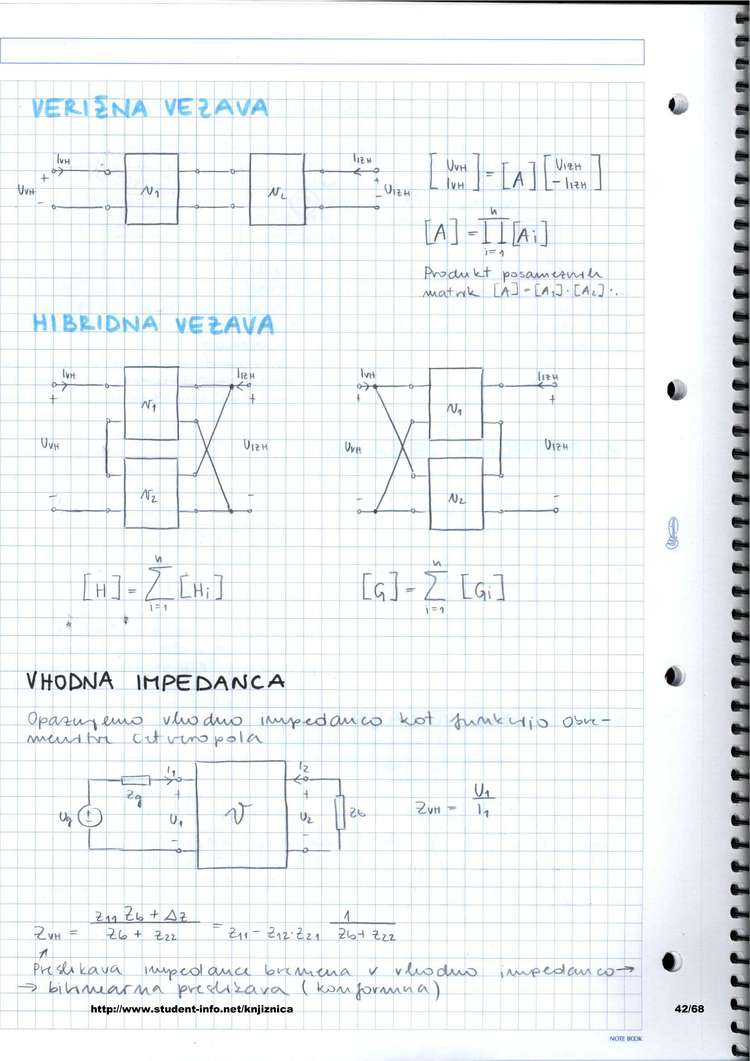 VERIŽNA VEZAVA
I_VH I_IZH
U_VH + - N_1 N_2 + - U_IZH
[U_VH I_VH] = [A] [U_IZH -I_IZH]
[A] = ∏_{i=1}^{n} [A_i]
Produkt posameznih
matrik [A] = [A_1]·[A_2]·..
HIBRIDNA VEZAVA
I_VH I_IZH I_VH I_IZH
+ N_1 + + N_1 +
U_VH U_IZH U_VH U_IZH
- N_2 - - N_2 -
[H] = ∑_{i=1}^{n} [H_i] [G] = ∑_{i=1}^{n} [G_i]
VHODNA IMPEDANCA
Opazujemo vhodno impedanco kot funkcijo obre-
menitve četveropola
I_1 I_2
Z_g + +
U_g U_1 N U_2 Z_b Z_VH = U_1 / I_1
- -
Z_VH = (z_11 Z_b + Δz) / (Z_b + z_22) = z_11 - z_12·z_21 1 / (Z_b + z_22)
↑
Preslikava impedance bremena v vhodno impedanco →
→ bilinearna preslikava (konformna)
http://www.student-info.net/knjiznica 42/68
NOTE BOOK